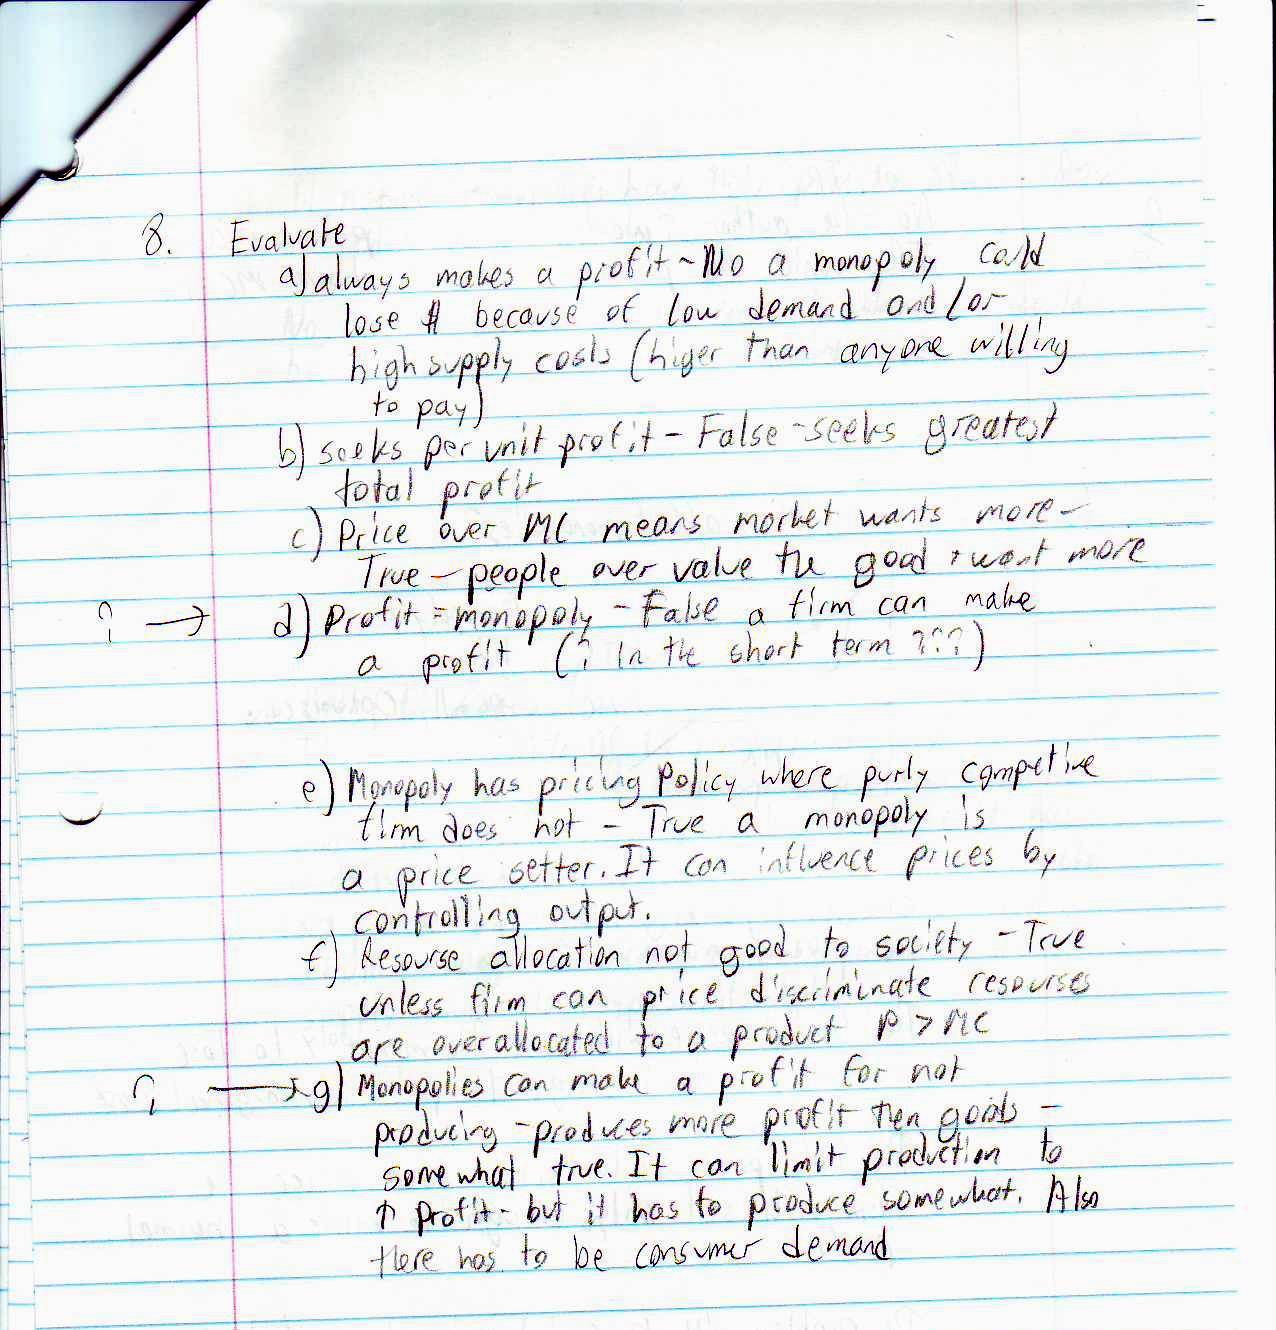 8. Evaluate
a) always makes a profit - No a monopoly could
lose $ because of low demand and/or
high supply costs (higer than anyone willing
to pay)
b) seeks per unit profit - False - seeks greatest
total profit
c) Price over MC means market wants more -
True - people over value the good + want more
? → d) Profit = monopoly - False a firm can make
a profit (? In the short term ???)
e) Monopoly has pricing Policy where purly competive
firm does not - True a monopoly is
a price setter. It can influence prices by
controlling output.
f) Resourse allocation not good to society - True
unless firm can price discriminate resourses
are overallocated to a product P > MC
? → g) Monopolies can make a profit for not
producing - produces more profit then goods -
somewhat true. It can limit production to
↑ profit - but it has to produce somewhat. Also
there has to be consumer demand